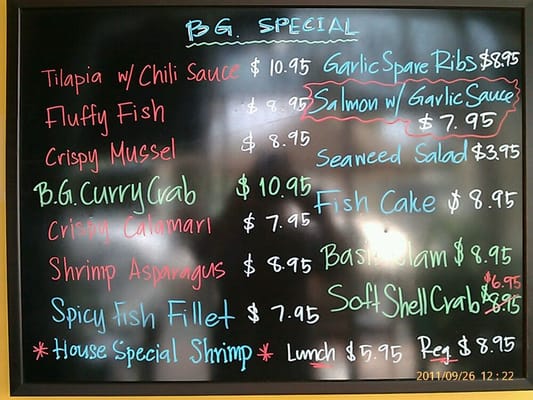 B.G. SPECIAL
Tilapia w/ Chili Sauce $10.95
Fluffy Fish $8.95
Crispy Mussel $8.95
B.G. Curry Crab $10.95
Crispy Calamari $7.95
Shrimp Asparagus $8.95
Spicy Fish Fillet $7.95
*House Special Shrimp* Lunch $5.95 Reg $8.95
Garlic Spare Ribs $8.95
Salmon w/ Garlic Sauce
$7.95
Seaweed Salad $3.95
Fish Cake $8.95
Basil Clam $8.95
$6.95
Soft Shell Crab $8.95
2011/09/26 12:22